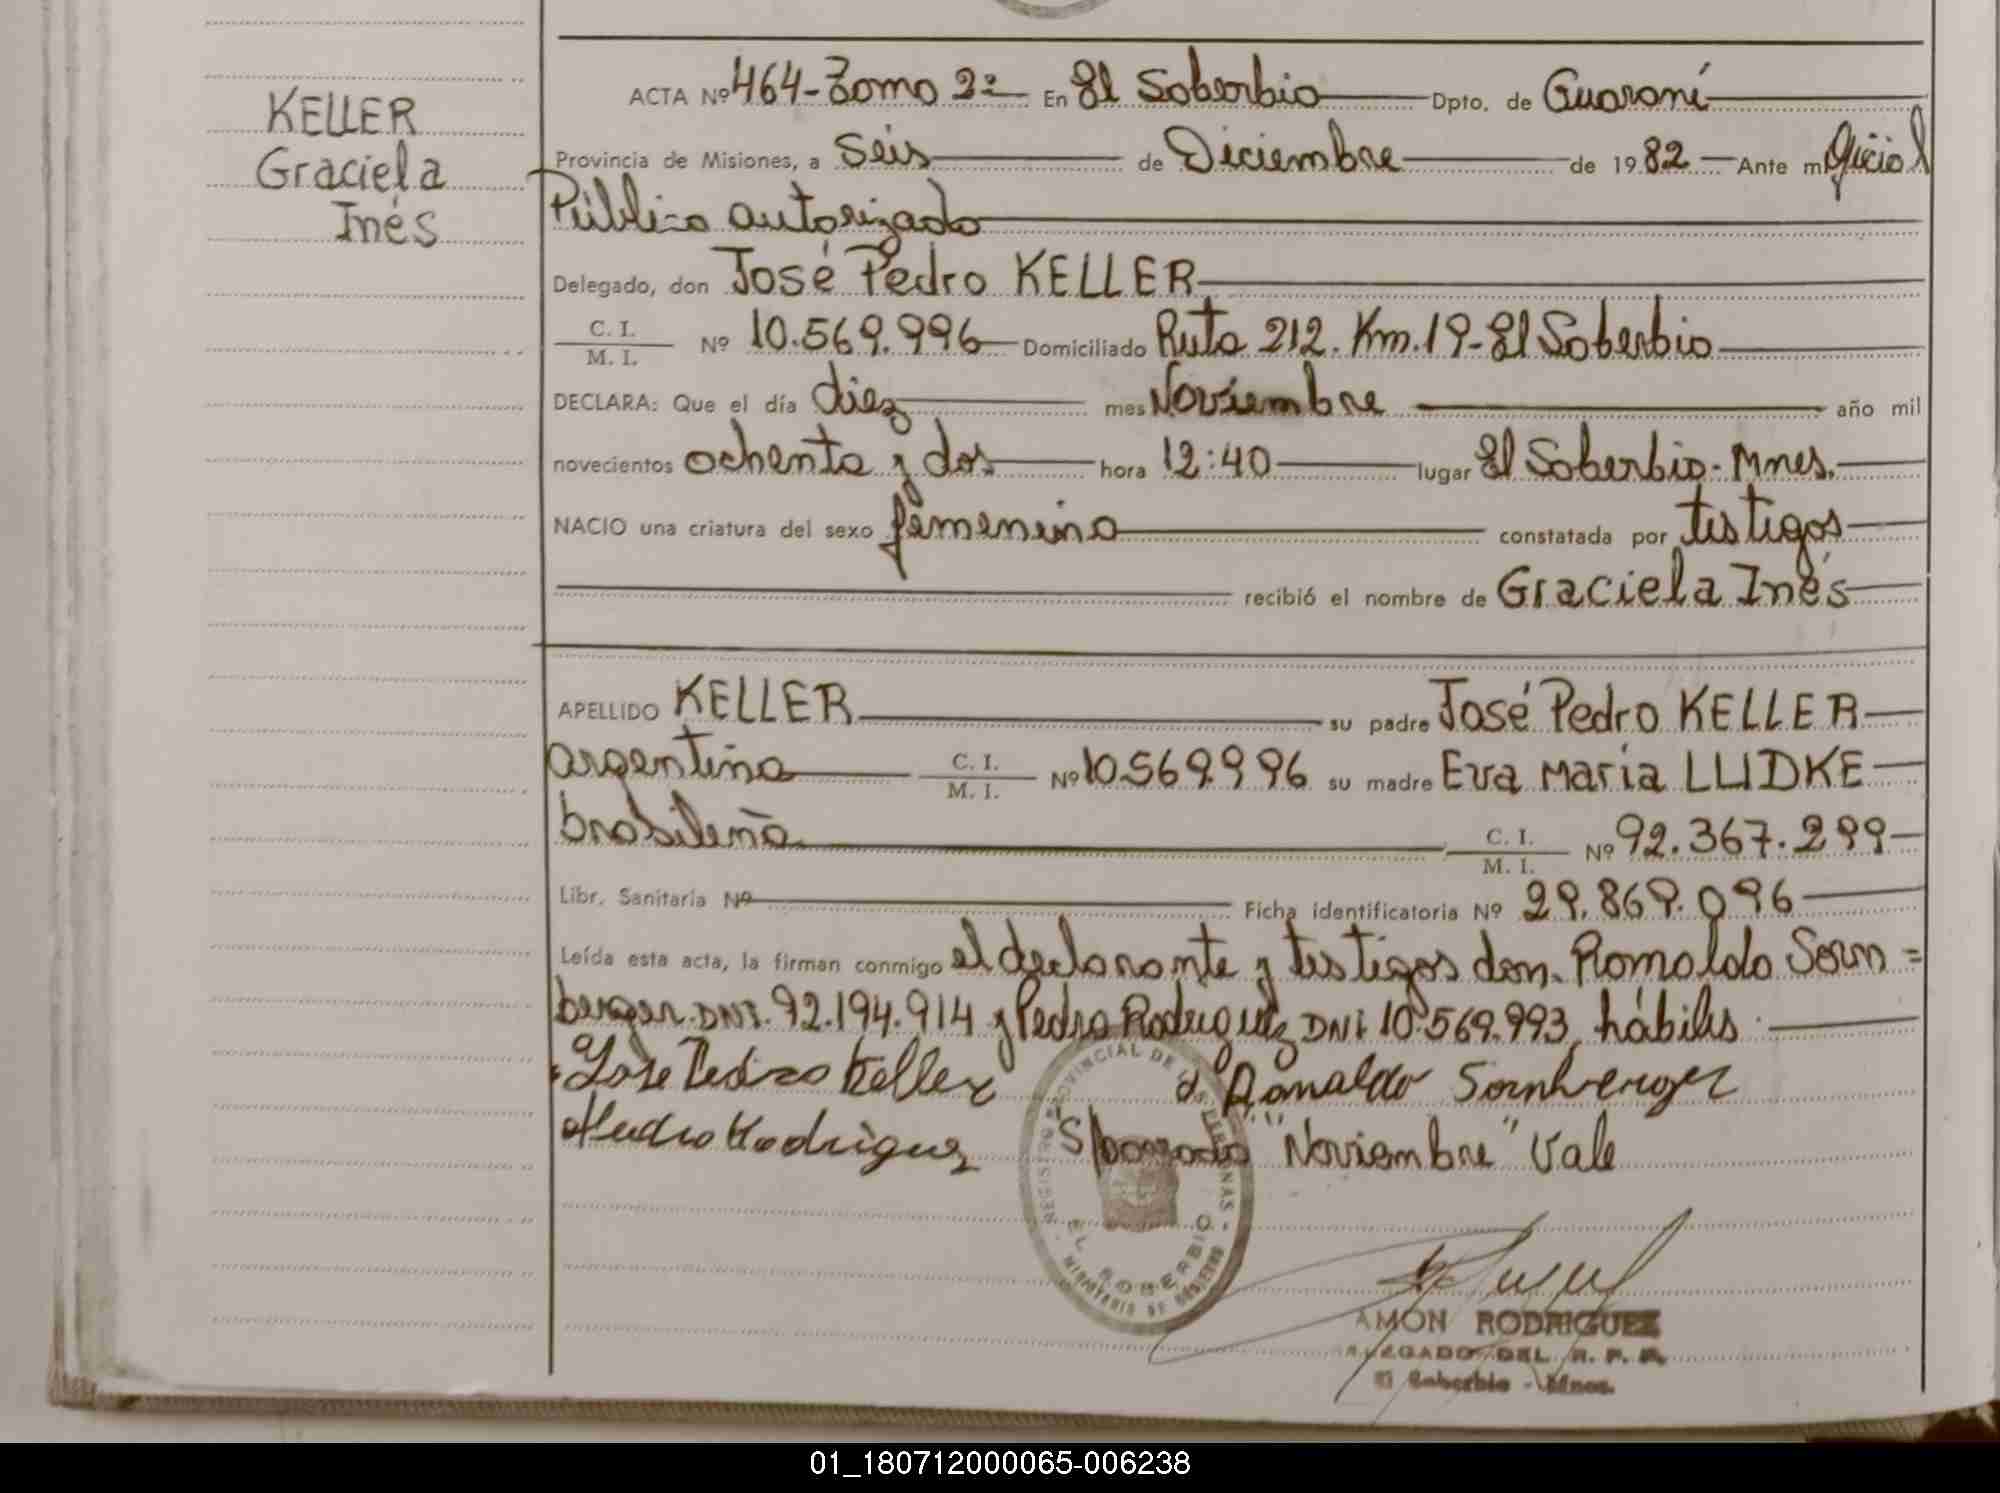 KELLER
Graciela
Inés
ACTA Nº 464-Tomo 2º En El Soberbio Dpto. de Guaraní
Provincia de Misiones, a Seis de Diciembre de 1982 Ante mí Oficial
Público autorizado
Delegado, don José Pedro KELLER
C. I.
M. I. Nº 10.569.996 Domiciliado Ruta 212. Km. 19-El Soberbio
DECLARA: Que el día diez mes Noviembre año mil
novecientos ochenta y dos hora 12:40 lugar El Soberbio-Mnes.
NACIO una criatura del sexo femenino constatada por testigos
recibió el nombre de Graciela Inés
APELLIDO KELLER su padre José Pedro KELLER
argentino C. I. M. I. Nº 10.569.996 su madre Eva María LUDKE
brasileña C. I. M. I. Nº 92.367.299
Libr. Sanitaria Nº Ficha identificatoria Nº 29.869.096
Leída esta acta, la firman conmigo el declarante y testigos don Romaldo Sorn=
berger DNI. 92.194.914 y Pedro Rodriguez DNI 10.569.993, hábiles.
José Pedro Keller Romaldo Sornberger
Pedro Rodriguez S/borrado "Noviembre" Vale
REGISTRO PROVINCIAL DE LAS PERSONAS
EL SOBERBIO
MINISTERIO DE GOBIERNO
AMON RODRIGUEZ
DELEGADO DEL R. P. P.
El Soberbio - Mnes.
01_180712000065-006238